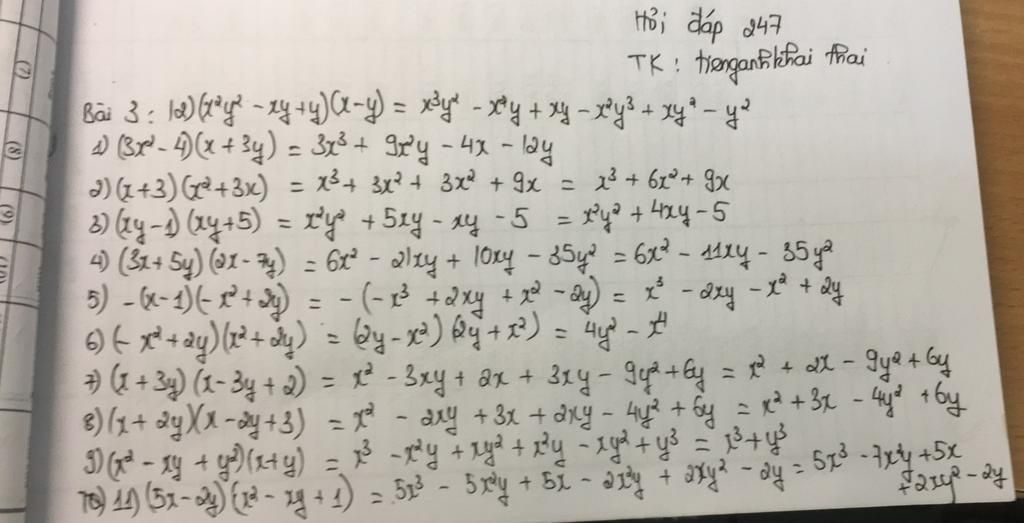 Hỏi đáp 247
TK: trienganhkhai thai
Bài 3: 12) (x²y² - xy + y)(x - y) = x³y² - x²y + xy - x²y³ + xy² - y²
1) (3x² - 4)(x + 3y) = 3x³ + 9x²y - 4x - 12y
2) (x + 3)(x² + 3x) = x³ + 3x² + 3x² + 9x = x³ + 6x² + 9x
3) (xy - 1)(xy + 5) = x²y² + 5xy - xy - 5 = x²y² + 4xy - 5
4) (3x + 5y)(2x - 7y) = 6x² - 21xy + 10xy - 35y² = 6x² - 11xy - 35y²
5) -(x - 1)(-x² + 2y) = -(-x³ + 2xy + x² - 2y) = x³ - 2xy - x² + 2y
6) (- x² + 2y)(x² + 2y) = (2y - x²)(2y + x²) = 4y² - x⁴
7) (x + 3y)(x - 3y + 2) = x² - 3xy + 2x + 3xy - 9y² + 6y = x² + 2x - 9y² + 6y
8) (x + 2y)(x - 2y + 3) = x² - 2xy + 3x + 2xy - 4y² + 6y = x² + 3x - 4y² + 6y
9) (x² - xy + y²)(x + y) = x³ - x²y + xy² + x²y - xy² + y³ = x³ + y³
10) 11) (5x - 2y)(x² - xy + 1) = 5x³ - 5x²y + 5x - 2x²y + 2xy² - 2y = 5x³ - 7x²y + 5x
+ 2xy² - 2y